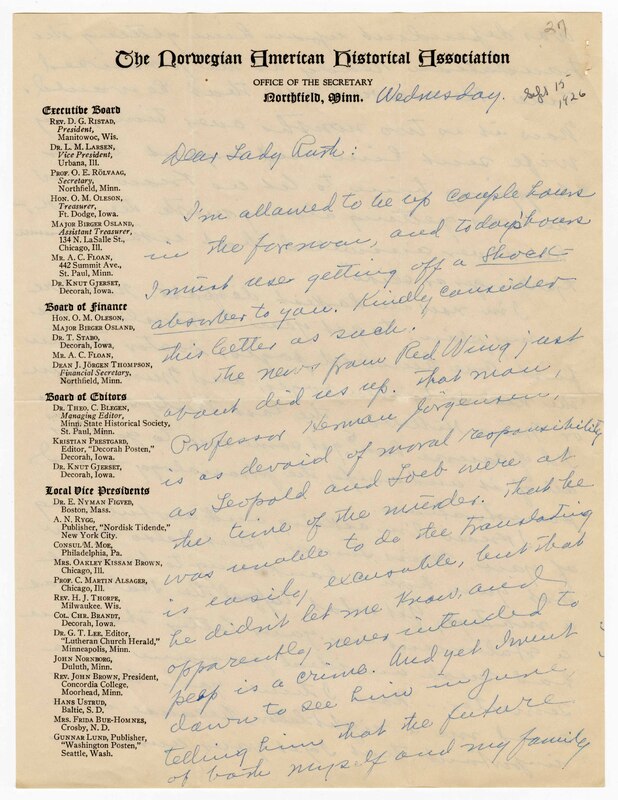 27
The Norwegian American Historical Association
OFFICE OF THE SECRETARY
Northfield, Minn.
Wednesday.
15
1926
Executive Board
REV. D. G. RISTAD,
President,
Manitowoc, Wis.
DR. L. M. LARSEN,
Vice President,
Urbana, Ill.
PROF. O. E. RÖLVAAG,
Secretary,
Northfield, Minn.
HON. O. M. OLESON,
Treasurer,
Ft. Dodge, Iowa.
MAJOR BIRGER OSLAND,
Assistant Treasurer,
134 N. LaSalle St.,
Chicago, Ill.
MR. A. C. FLOAN,
442 Summit Ave.,
St. Paul, Minn.
DR. KNUT GJERSET,
Decorah, Iowa.
Board of Finance
HON. O. M. OLESON,
MAJOR BIRGER OSLAND,
DR. T. STABO,
Decorah, Iowa.
MR. A. C. FLOAN,
DEAN J. JÖRGEN THOMPSON,
Financial Secretary,
Northfield, Minn.
Board of Editors
DR. THEO. C. BLEGEN,
Managing Editor,
Minn. State Historical Society,
St. Paul, Minn.
KRISTIAN PRESTGARD,
Editor, "Decorah Posten,"
Decorah, Iowa.
DR. KNUT GJERSET,
Decorah, Iowa.
Local Vice Presidents
DR. E. NYMAN FIGVED,
Boston, Mass.
A. N. RYGG,
Publisher, "Nordisk Tidende,"
New York City.
CONSUL M. MOE,
Philadelphia, Pa.
MRS. OAKLEY KISSAM BROWN,
Chicago, Ill.
PROF. C. MARTIN ALSAGER,
Chicago, Ill.
REV. H. J. THORPE,
Milwaukee. Wis.
COL. CHR. BRANDT,
Decorah, Iowa.
DR. G. T. LEE, Editor,
"Lutheran Church Herald,"
Minneapolis, Minn.
JOHN NORNBORG,
Duluth, Minn.
REV. JOHN BROWN, President,
Concordia College,
Moorhead, Minn.
HANS USTRUD,
Baltic, S. D.
MRS. FRIDA BUE-HOMNES,
Crosby, N. D.
GUNNAR LUND, Publisher,
"Washington Posten,"
Seattle, Wash.
Dear Lady Ruth:
I'm allowed to be up couple hours
in the forenoon, and today's hours
I must use getting off a Shock
absorber to you. Kindly consider
this letter as such.
The news from Red Wing just
about did us up. That man,
Professor Herman Jörgensen,
is as devoid of moral responsibility
as Leopold and Loeb were at
the time of the murder. That he
was unable to do the translating
is easily excusable, but that
he didn't let me know, and
apparently never intended to
is a crime. And yet I went
down to see him in June
telling him that the future
of both myself and my family